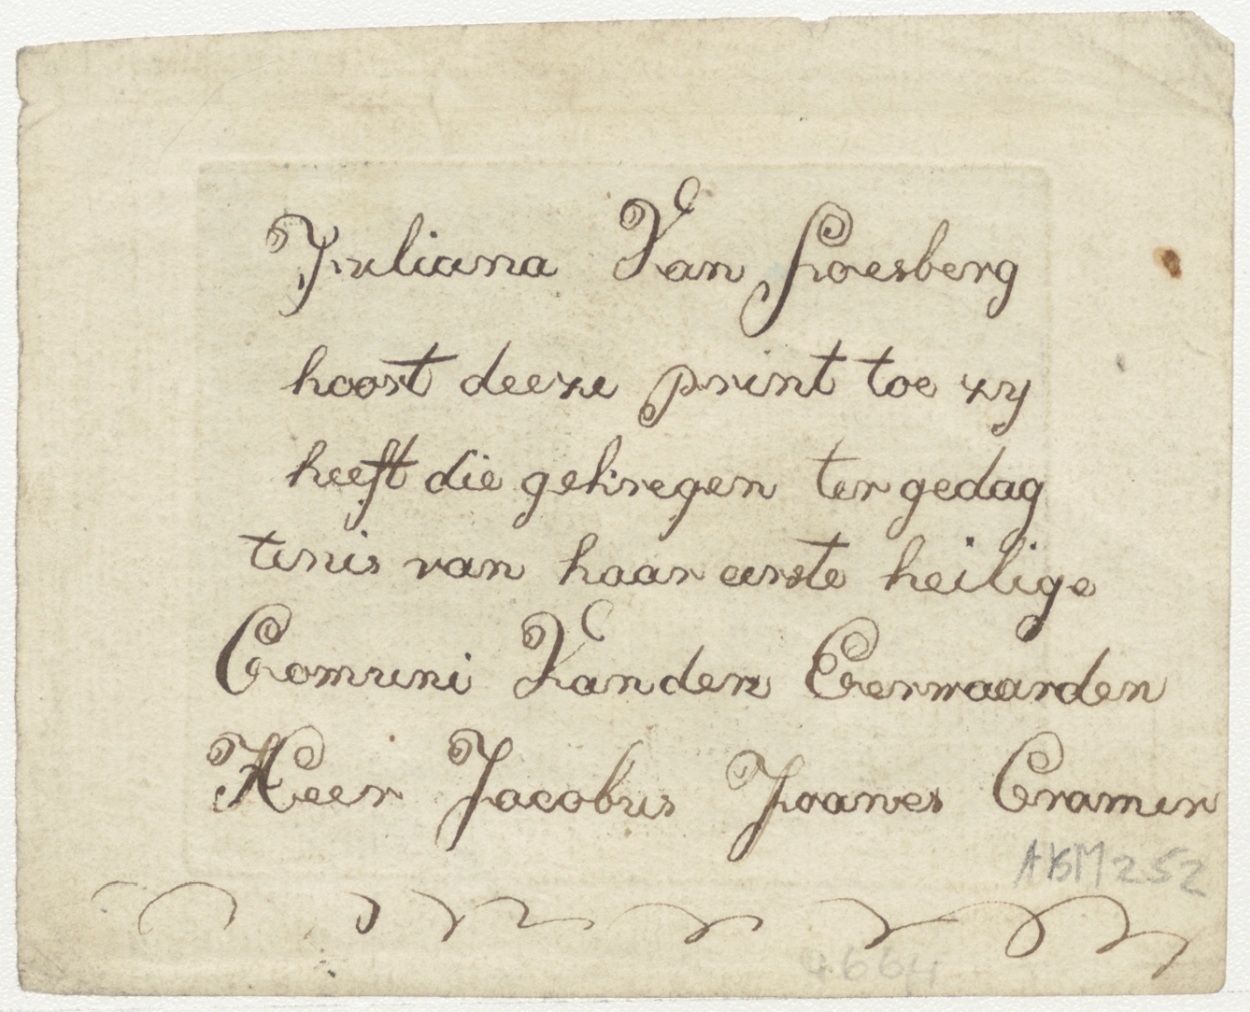 Juliana Van Loesberg
hoort deeze print toe zy
heeft die gekregen ter gedag
tenis van haar eerste heilige
Comuni Van den Eerwaarden
Heer Jacobus Joannes Cramer
AKM 252